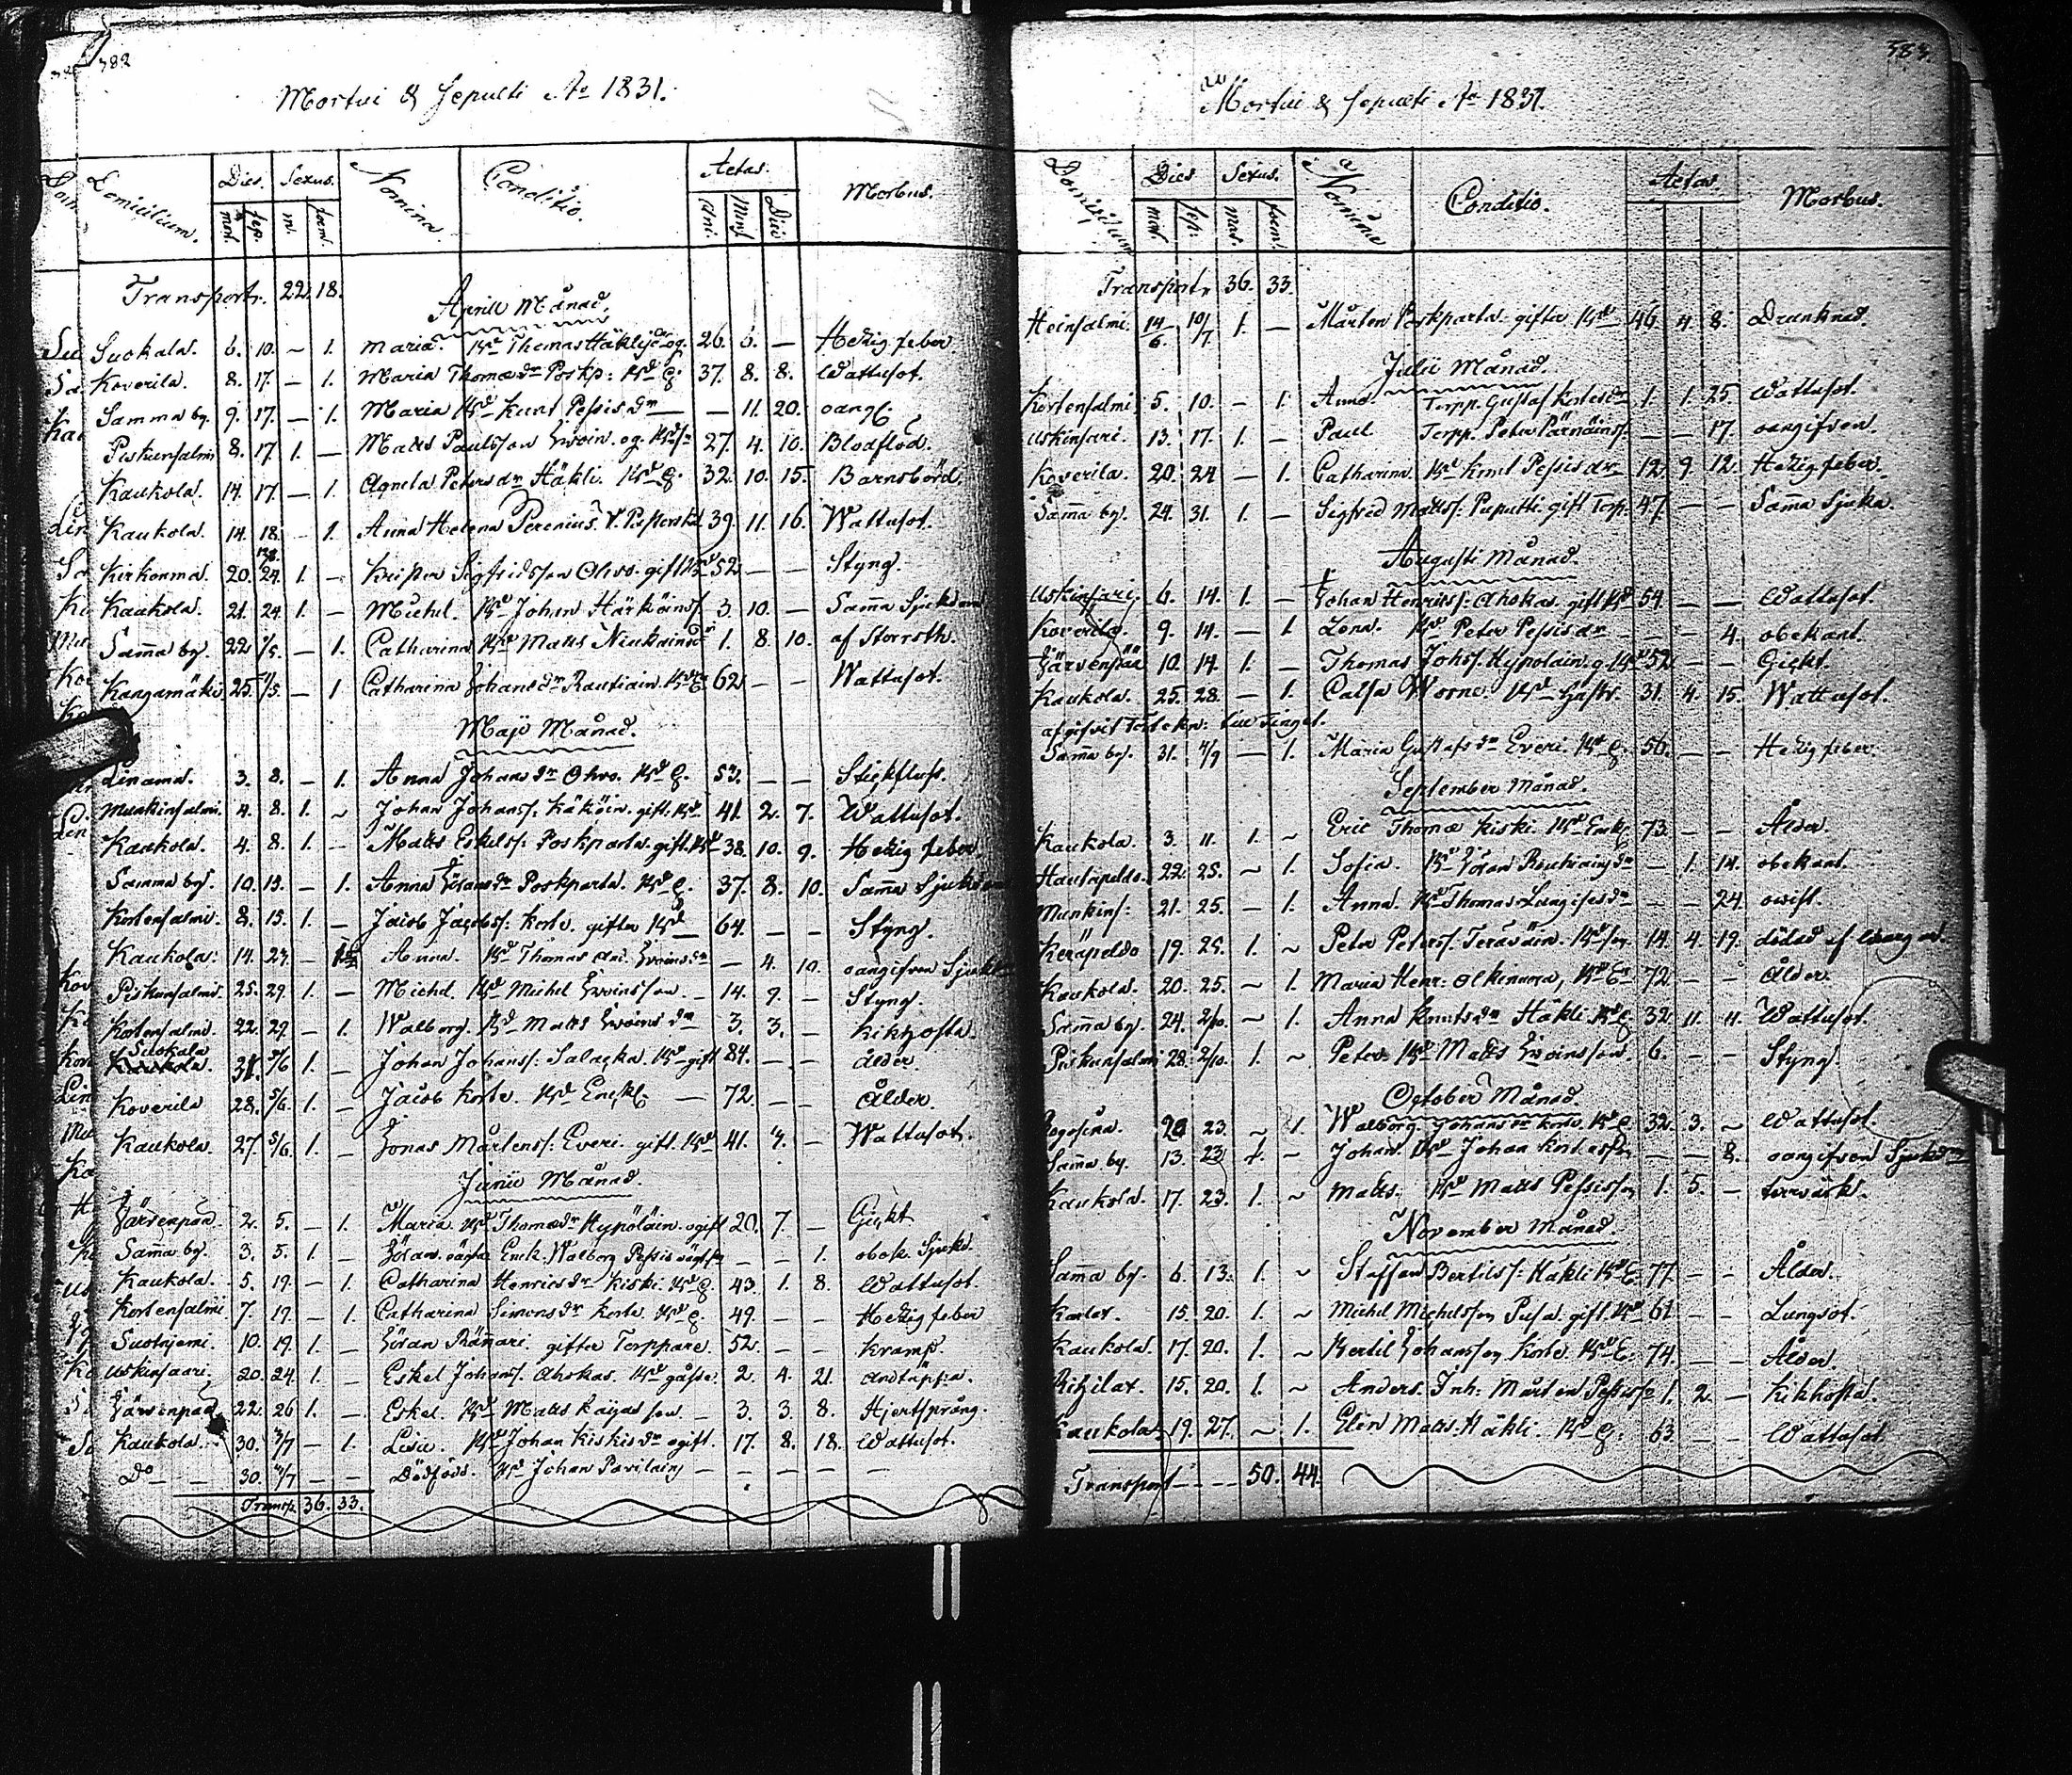 382
Mortui & Sepulti Aº 1831.
Domicilium. Dies. Sexus. Nomina. Conditio. Aetas. Morbus.
mort. sep. m. foem. Ani. Mens. Dies
Transport. 22. 18.
Aprill Månad.
Suokala. 6. 10. ~ 1. Maria. Bd Thomas Häkli 26. 6. — Hetzig feber
Koverila. 8. 17. — 1. Maria Thomædr Poskp: Bd E. 37. 8. 8. Wattusot.
Samma by. 9. 17. — 1. Maria Bd Knut Pessis dr — — 11. 20. oangf.
Piskunsalmi 8. 17. 1. — Matts Paulsson og. 27. 4. 10. Blodflod.
Kaukola. 14. 17. — 1. Agneta Petersdr Häkli. Bd E. 32. 10. 15. Barnsbörd.
Kaukola. 14. 18. — 1. Anna Helena Perenius. 39. 11. 16. Wattusot.
Kirkonmä. 20. 24. 1. — Krister Sigfridsson Ohvo. gift Bd 52 — — Styng.
Kaukola. 21. 24. 1. — Michel. Bd Johan Härköins 3. 10. — Samma Sjukdom
Samma by. 22. 1/5. — 1. Catharina Bd Matts 1. 8. 10. af Storroth.
Kangamäki 25. 1/5. — 1 Catharina Johansdr Rautiain. 62 — — Wattusot.
Majo Månad.
Linamä. 3. 8. — 1. Anna Johansdr Ohvo. Bd E. 53. — — Stickfluss.
Munkinsalmi. 4. 8. 1. ~ Johan Johanss. Käköin. gift. Bd 41. 2. 7. Wattusot.
Kaukola. 4. 8. 1. — Matts Eskelss: Poskparta. gift. Bd 38. 10. 9. Hetzig feber
Samma by. 10. 15. — 1. Anna Göransdr Poskparta. Bd E. 37. 8. 10. Samma Sjukdom
Kortensalmi. 8. 15. 1. — Jacob Jacobss: Korte. gifter Bd 64. — — Styng.
Kaukola: 14. 23. — 1 Anna. Bd Thomas — 4. 10. oangifven Sjukd
Piskunsalmi. 25. 29. 1. — Michel. Bd Michel — 14. 9. — Styng.
Kortensalmi. 22. 29. — 1. Walborg. Bd Matts 3. 3. — Kikhosta.
Suokala 31. 5/6 1. — Johan Johanss: Salacka. Bd gift 84. — — Ålder.
Koverila 28. 5/6. 1. — Jacob Korte. Bd Enckl. — 72. — — Ålder.
Kaukola. 27. 5/6. 1. — Jonas Mårtenss: Everi. gift. Bd 41. 4. — Wattusot.
Junii Månad.
Järvenpää. 2. 5. — 1. Maria. Bd Thomædr Hypöläin. ogift 20. 7. — Gickt
Samma by. 3. 5. 1. — Göran. Enck. Walborg Pessis — — 1. obek. Sjukd.
Kaukola. 5. 19. — 1. Catharina Henricsdr Kiski. Bd E. 43. 1. 8. Wattusot.
Kortensalmi 7. 19. — 1. Catharina Simonsdr Korte. Bd E. 49. — — Hetzig feber
Suotniemi. 10. 19. 1. — Göran Rännäri. gifter Torppare. 52. — — Kramp.
Uskinsaari. 20. 24. 1. — Eskel Johanss. Ahokas. Bd 2. 4. 21. Andtäppa.
Järvenpää 22. 26 1. — Eskel. Bd Matts 3. 3. 8. Hjertsprång.
Kaukola. 30. 3/7 — 1. Lisa. Bd Johan Kiskisdr ogift. 17. 8. 18. Wattusot.
Do — — 30. 3/7 — — Dödfödd. Bd Johan Pavilain — — — —
Transp. 36. 33.
383.
Mortui & Sepulti Aº 1831.
Domicilium Dies Sexus. Nomina Conditio. Aetas. Morbus.
mort. sep: mas. foem:
Transport 36. 33.
Heinsalmi. 14/6. 10/7 1. — Mårten Poskparta. gifter Bd 46 4. 8. Drunknad.
Julii Månad.
Kortensalmi 5. 10. — 1. Anna. Torpp. Gustaf Kortesdr 1. 1. 25 Wattusot.
Uskinsari. 13. 17. 1. — Paul Torpp. Peter Pärnäins. — — 17. oangifven.
Koverila. 20. 24 — 1. Catharina Bd Knut Pessisdr 12. 9. 12. Hetzig feber.
Samma by. 24. 31. 1. — Sigfred Mattss: Puputti. gift Torp. 47. — — Samma Sjuka.
Augusti Månad.
Uskinsari. 6. 14. 1. — Johan Henrikss: Ahokas. gift Bd 54. — — Wattusot.
Koverila. 9. 14. — 1 Lena. Bd Peter Pessisdr — — 4. obekant.
Järvenpää 10. 14. 1. — Thomas Johss. Hypölain. g. Bd 52 — — Gickt.
Kaukola. 25. 28. — 1. Caisa Worne. Bd 31. 4. 15. Wattusot.
Samma by. 31. 4/9 — 1. Maria Gustafsdr Everi. Bd E. 56. — — Hetzig feber.
September Månad.
Kaukola. 3. 11. 1. ~ Eric Thomæ Kiski. Bd Enck. 73. — — Ålder.
Hautapeldo. 22. 25. ~ 1. Sofia. Bd Göran — 1. 14. obekant.
Munkins: 21. 25. — 1. Anna. Bd Thomas — — 24. owist.
Keräpeldo 19. 25. 1. ~ Peter Peterss. Teräväin. Bd son 14. 4. 19. dödad af
Kaukola. 20. 25. ~ 1. Maria Henr: Olkinuora, Bd E. 72 — — Ålder.
Samma by. 24. 2/10. ~ 1. Anna Knutsdr Häkli Bd E 32. 11. 11. Wattusot.
Piskunsalmi 28. 2/10. 1. ~ Peter. Bd Matts 6. — — Styng.
October Månad.
Rogosina. 20 23. ~ 1. Walborg. Johansdr Korte. Bd E 32. 3. — Wattusot.
Samma by. 13. 23 1. ~ Johan. Bd Johan — — 8. oangifven Sjukdom
Kaukola. 17. 23. 1. ~ Matts. Bd Matts Pessisson 1. 5. — torrvärk.
November Månad.
Samma by. 6. 13. 1. ~ Staffan Bertilss: Häkli Bd E. 77. — — Ålder.
15. 20. 1. ~ Michel Michelsson Pusa. gift. Bd 61. — — Lungsot.
Kaukola. 17. 20. 1. ~ Bertil Johansson Korte. Bd E: 74. — — Ålder.
Ritzilax. 15. 20. 1. ~ Anders. Inh: Mårten 1. 2. — Kikhosta.
Kaukola 19. 27. ~ 1. Elin Matts: Häkli. Bd E: 63. — — Wattusot.
Transport — — — 50. 44.